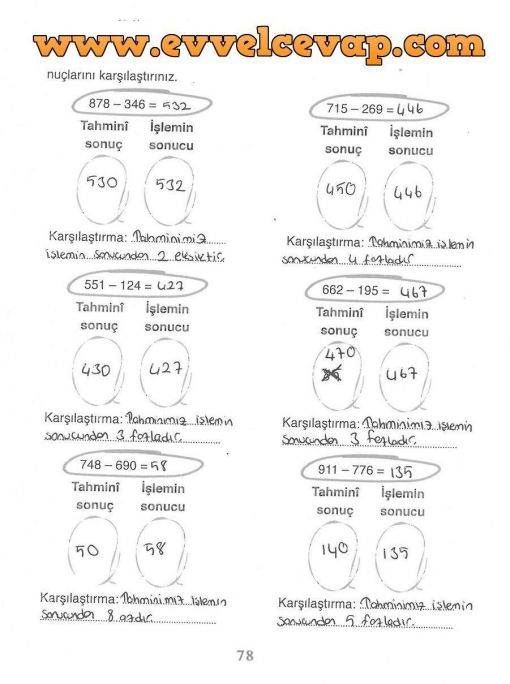 www.evvelcevap.com
nuçlarını karşılaştırınız.
878 – 346 = 532
Tahminî İşlemin
sonuç sonucu
530 532
Karşılaştırma: Tahminimiz
işlemin sonucundan 2 eksiktir.
715 – 269 = 446
Tahminî İşlemin
sonuç sonucu
450 446
Karşılaştırma: Tahminimiz işlemin
sonucundan 4 fazladır.
551 – 124 = 427
Tahminî İşlemin
sonuç sonucu
430 427
Karşılaştırma: Tahminimiz işlemin
sonucundan 3 fazladır.
662 – 195 = 467
Tahminî İşlemin
sonuç sonucu
470 467
Karşılaştırma: Tahminimiz işlemin
sonucundan 3 fazladır.
748 – 690 = 58
Tahminî İşlemin
sonuç sonucu
50 58
Karşılaştırma: Tahminimiz işlemin
sonucundan 8 azdır.
911 – 776 = 135
Tahminî İşlemin
sonuç sonucu
140 135
Karşılaştırma: Tahminimiz işlemin
sonucundan 5 fazladır.
78